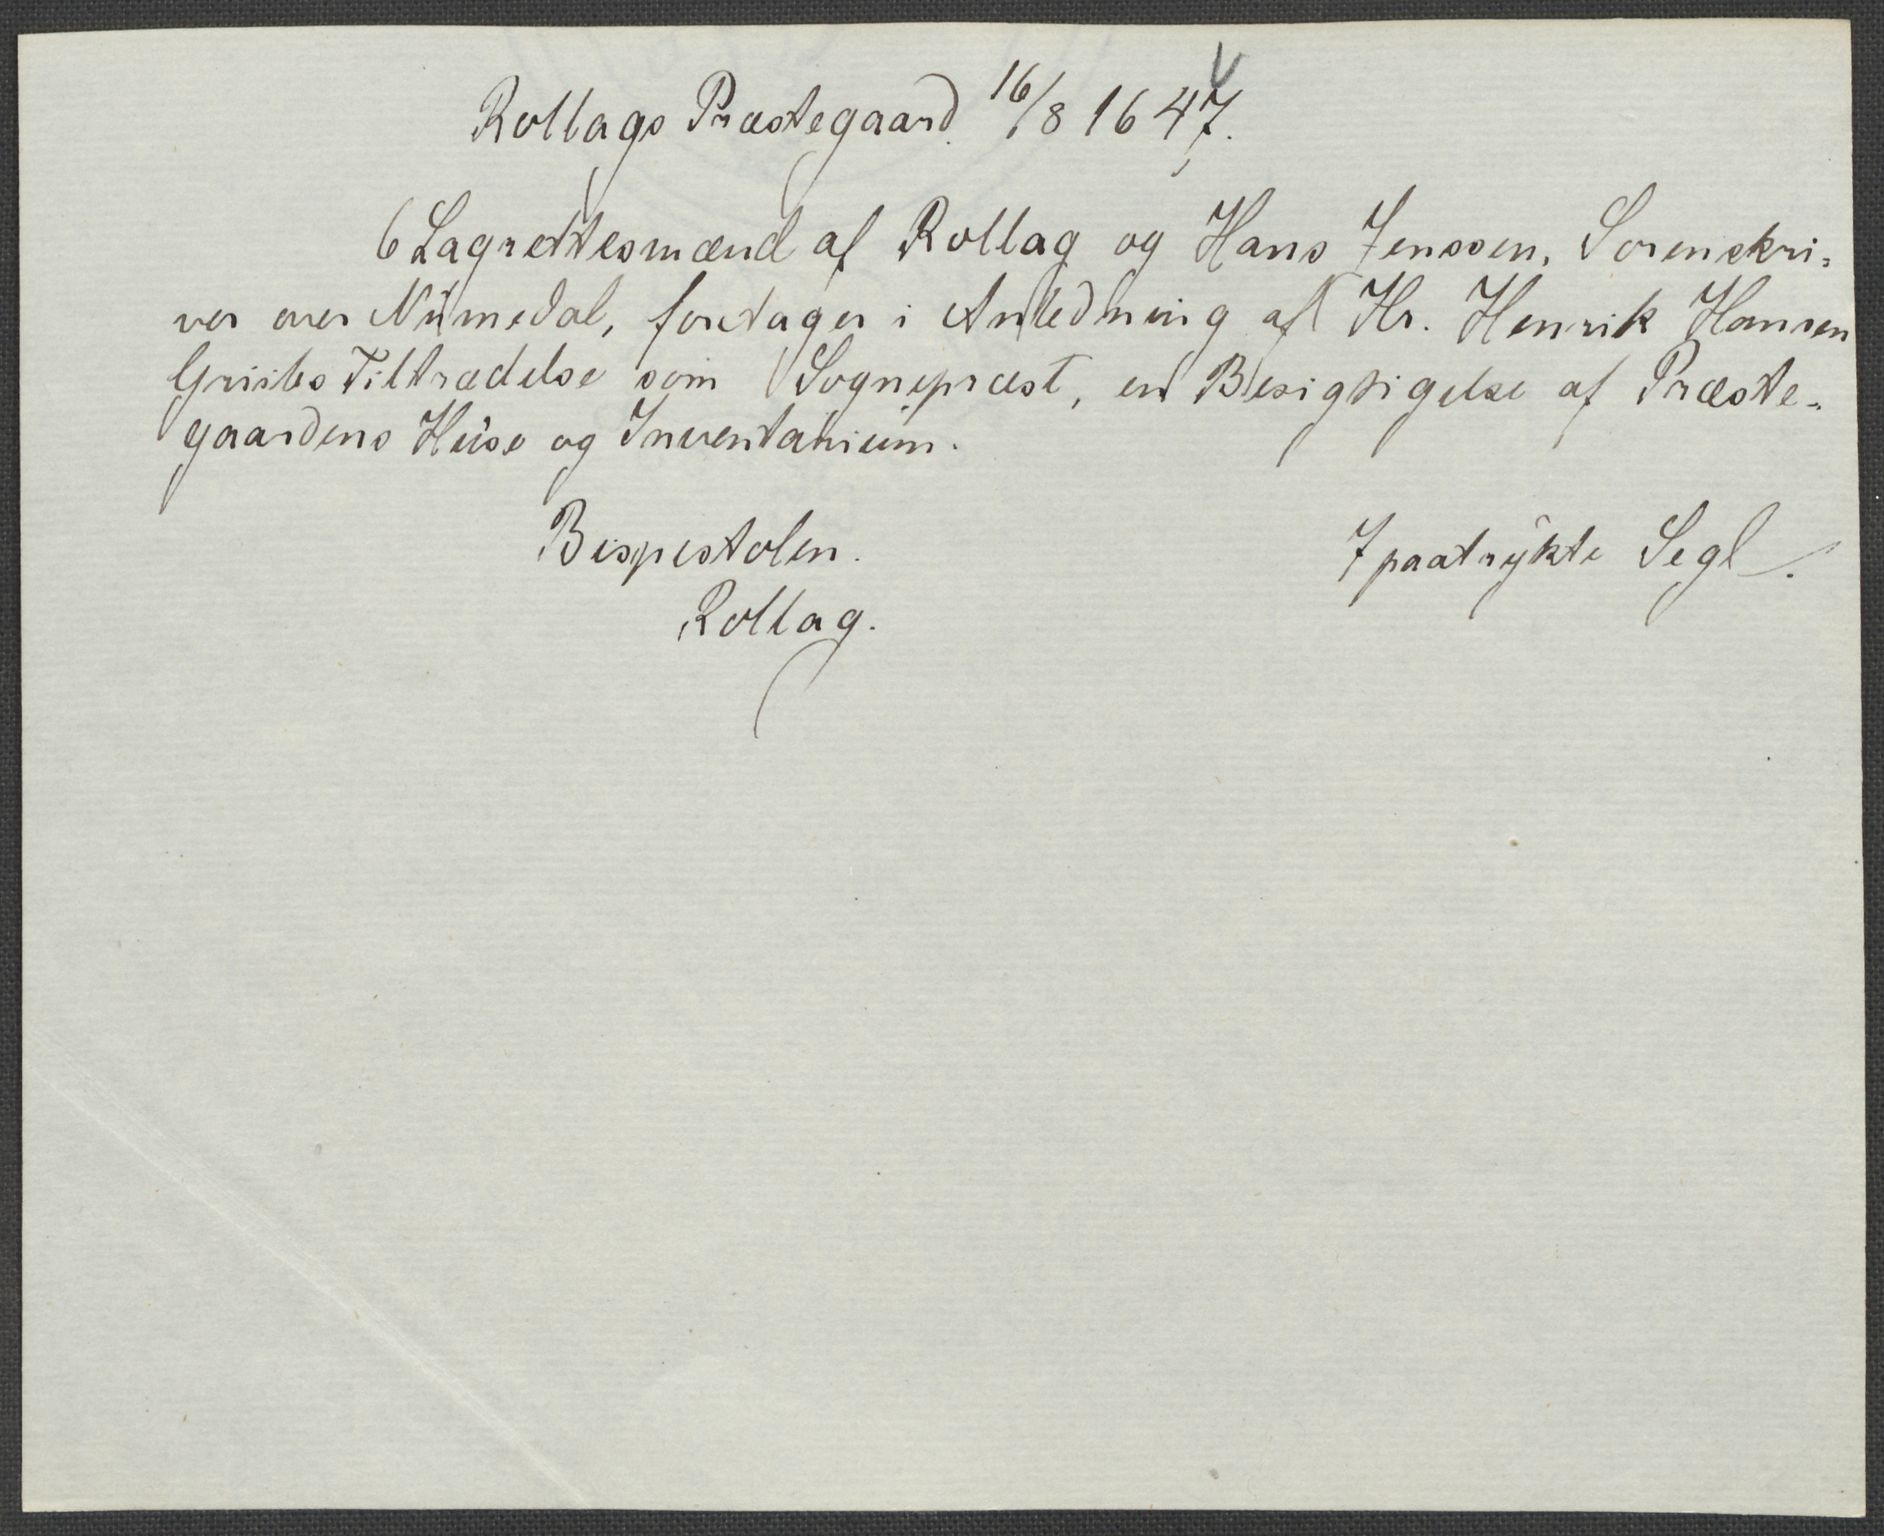 Rollags Præstegaard 16/8 1647.
6 Lagrettesmænd af Rollag og Hans Jenssen, Sorenskri-
ver over Numedal, foretager i Anledning af Hr. Henrik Hansen
Tiltrædelse som Sognepræst, en Besigtigelse af Præste-
gaardens Huse og Inventarium.
Bispestolen. 7 paatrykte Segl.
Rollag.